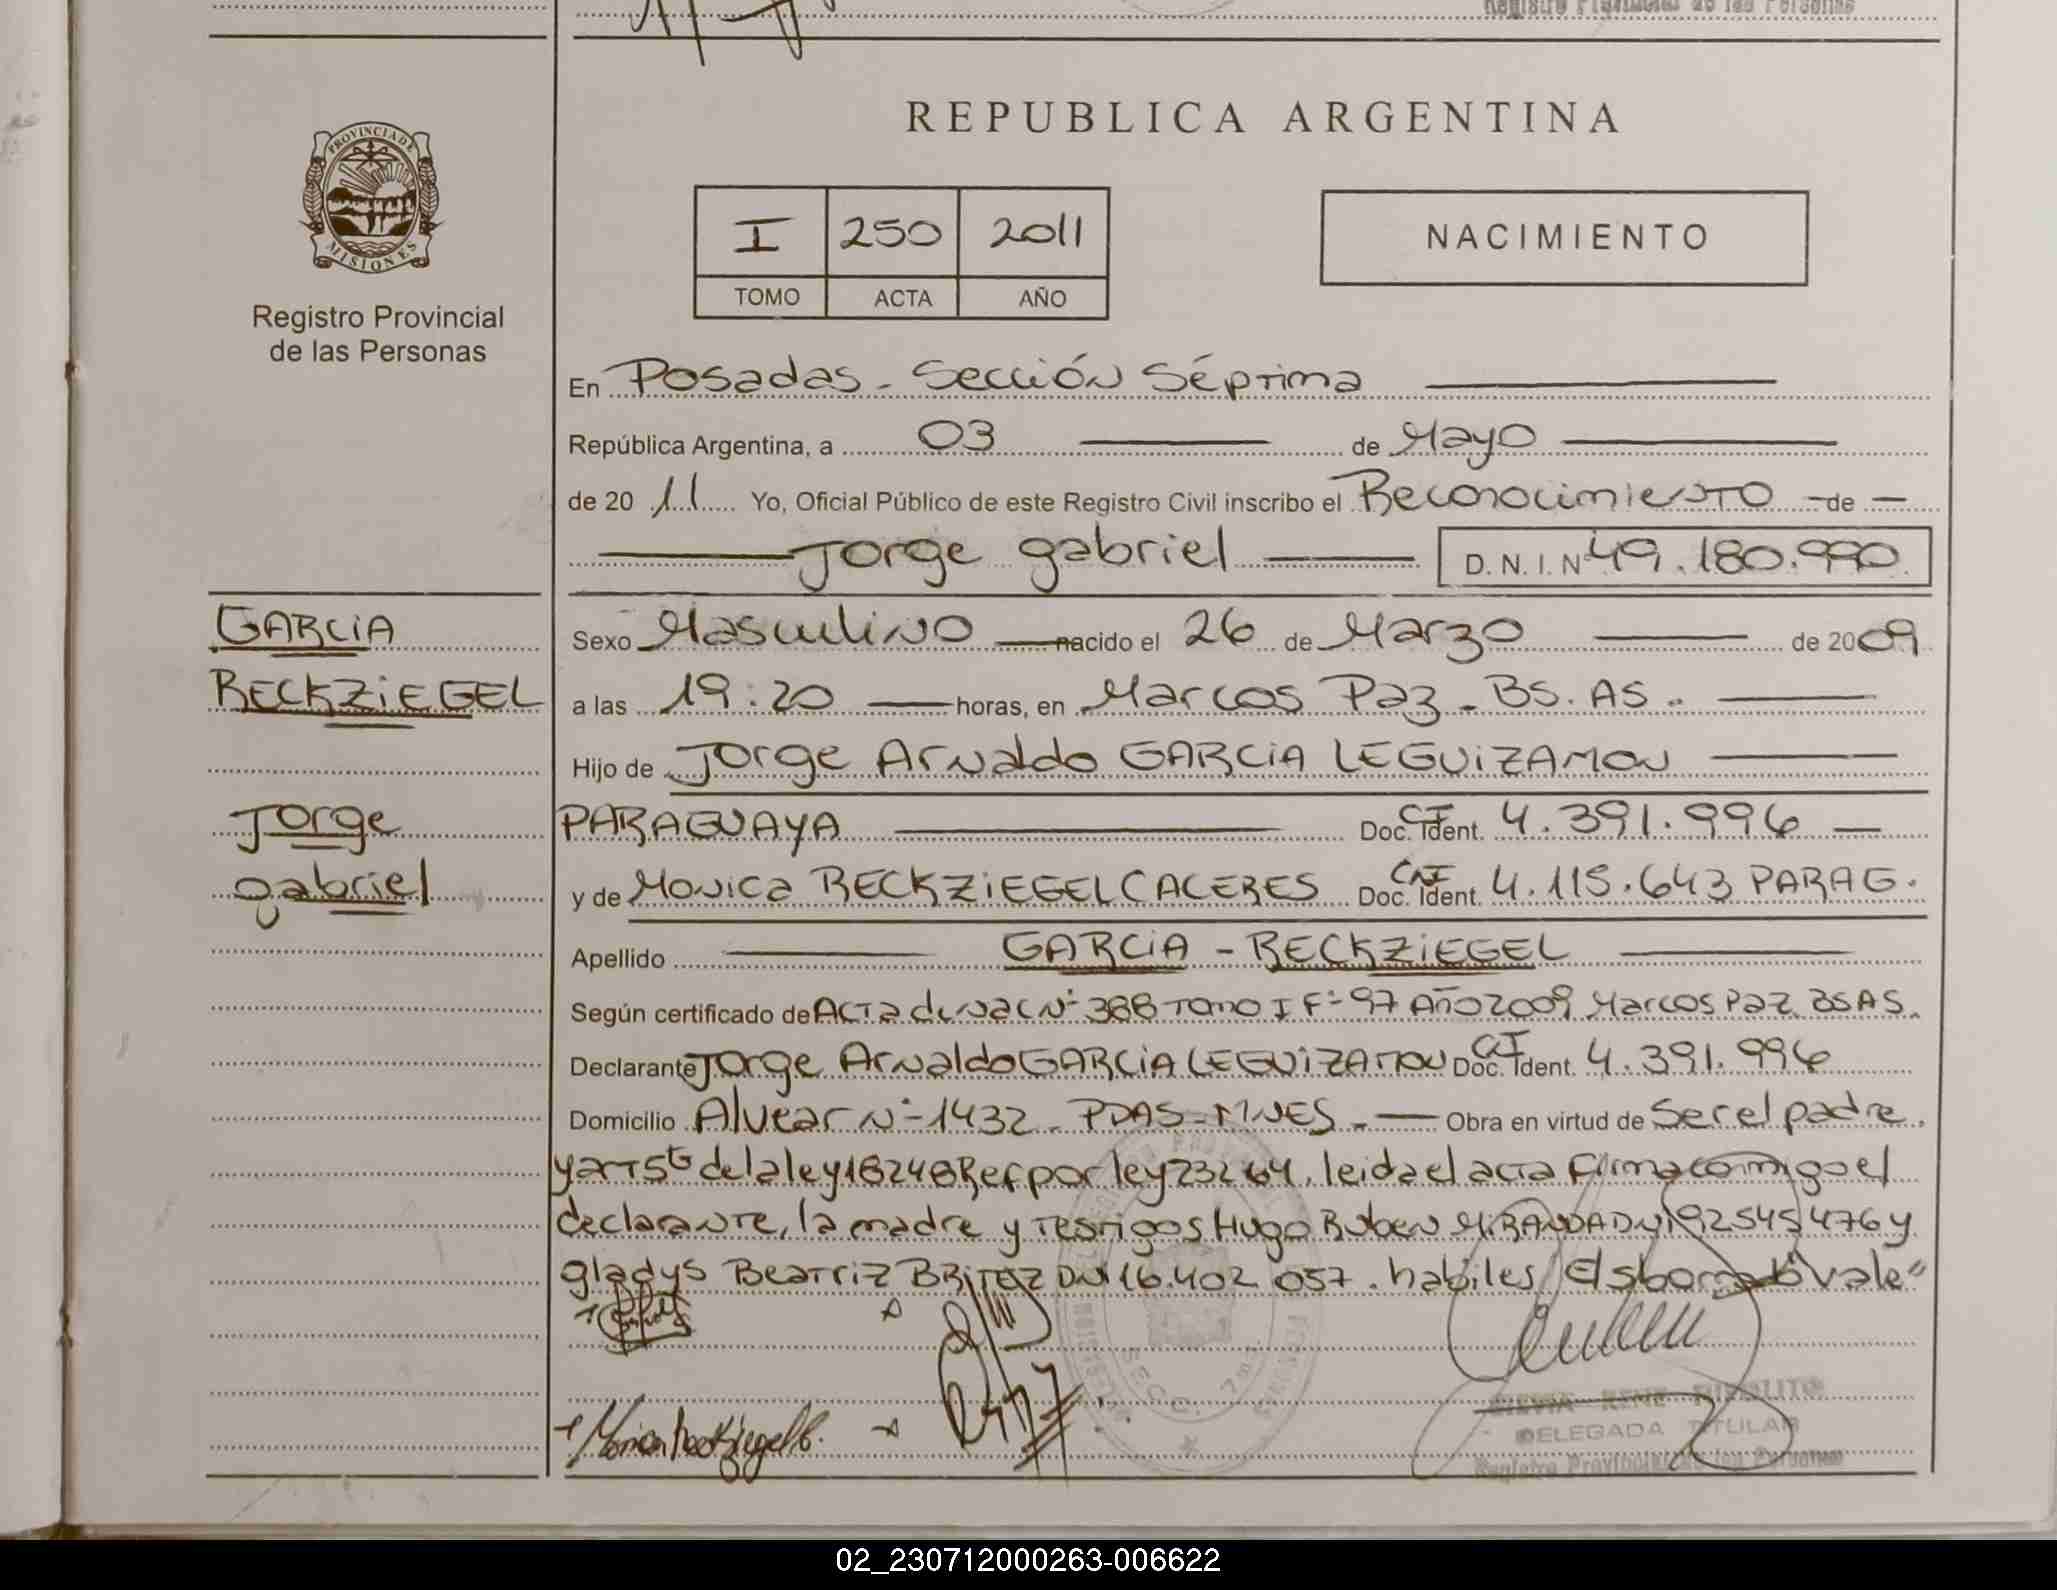 Registro Provincial de las Personas
REPUBLICA ARGENTINA
PROVINCIA DE
MISIONES
Registro Provincial
de las Personas
I 250 2011
TOMO ACTA AÑO
NACIMIENTO
En Posadas - Sección Séptima
República Argentina, a 03 de Mayo
de 20 11 Yo, Oficial Público de este Registro Civil inscribo el Reconocimiento de
Jorge gabriel D. N. I. N 49.180.990
GARCIA
RECKZIEGEL
Jorge
gabriel
Sexo Masculino nacido el 26 de Marzo de 2009
a las 19:20 horas, en Marcos Paz - BS. AS.
Hijo de Jorge Arnaldo GARCIA LEGUIZAMON
PARAGUAYA Doc. Ident. CI 4.391.996
y de Monica RECKZIEGEL CACERES Doc. Ident. CNI 4.115.643 PARAG.
Apellido GARCIA - RECKZIEGEL
Según certificado de ACTA de Nac Nº 388 Tomo I Fº 97 Año 2009 Marcos Paz BS AS.
Declarante Jorge Arnaldo GARCIA LEGUIZAMON Doc. Ident. CI 4.391.996
Domicilio Alvear Nº 1432 - PDAS - MNES - Obra en virtud de Ser el padre
y art 5to de la ley 18248 Ref por ley 23264, leida el acta firma conmigo el
declarante, la madre y testigos Hugo Ruben MIRANDA DNI 92545476 y
gladys Beatriz BRITEZ DNI 16.402.057. habiles
SECC. 7ma
DELEGADA TITULAR
Registro Provincial de las Personas
02_230712000263-006622